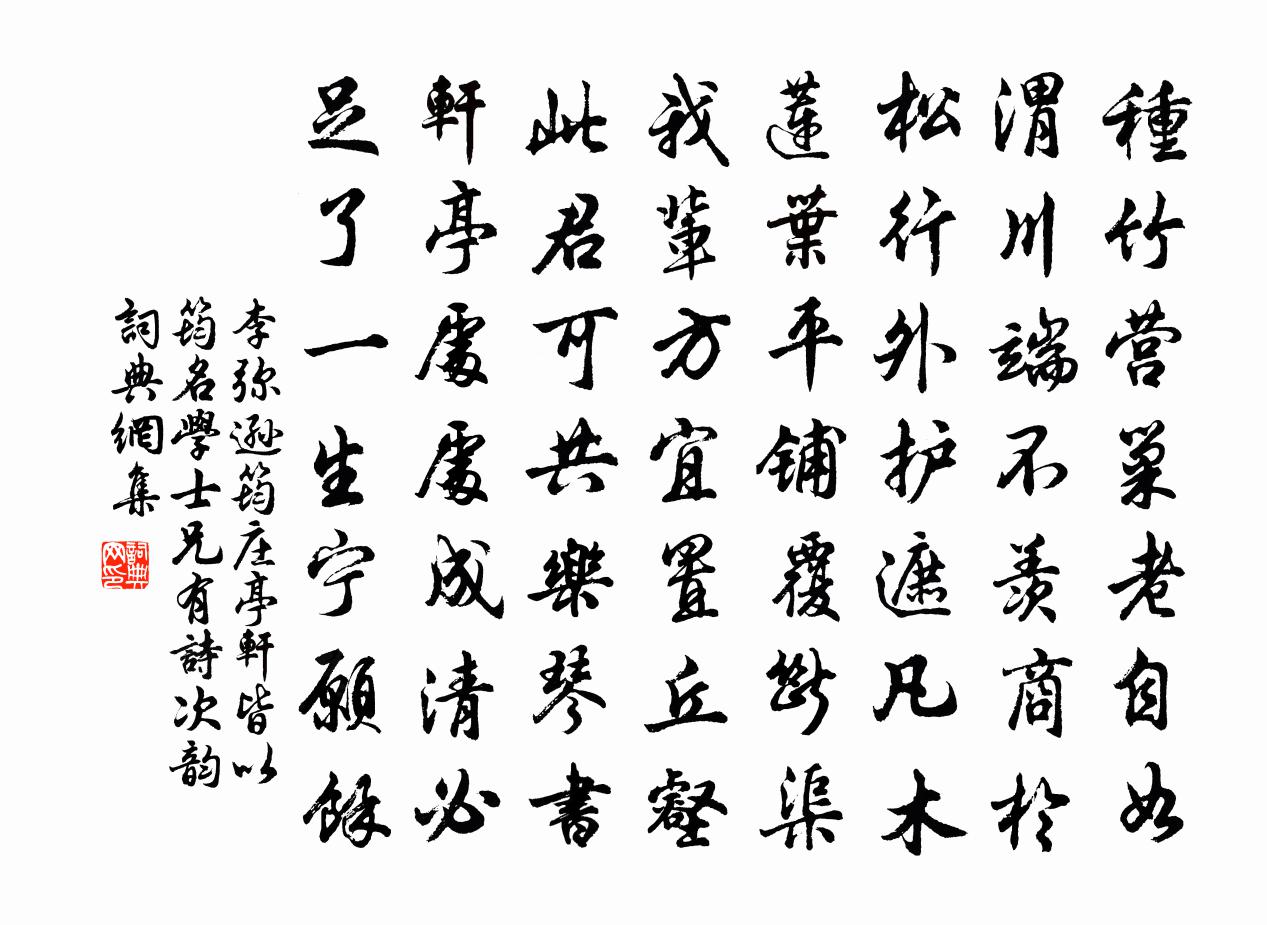 種竹营巢老自如
渭川端不羡商於
松行外护遮凡木
蓮葉平铺覆斷渠
我輩方宜置丘壑
此君可共樂琴書
軒亭處處成清必
足了一生宁願餘
李弥遜筠庄亭軒皆以
筠名學士兄有詩次韵
詞典網集
詞典网印